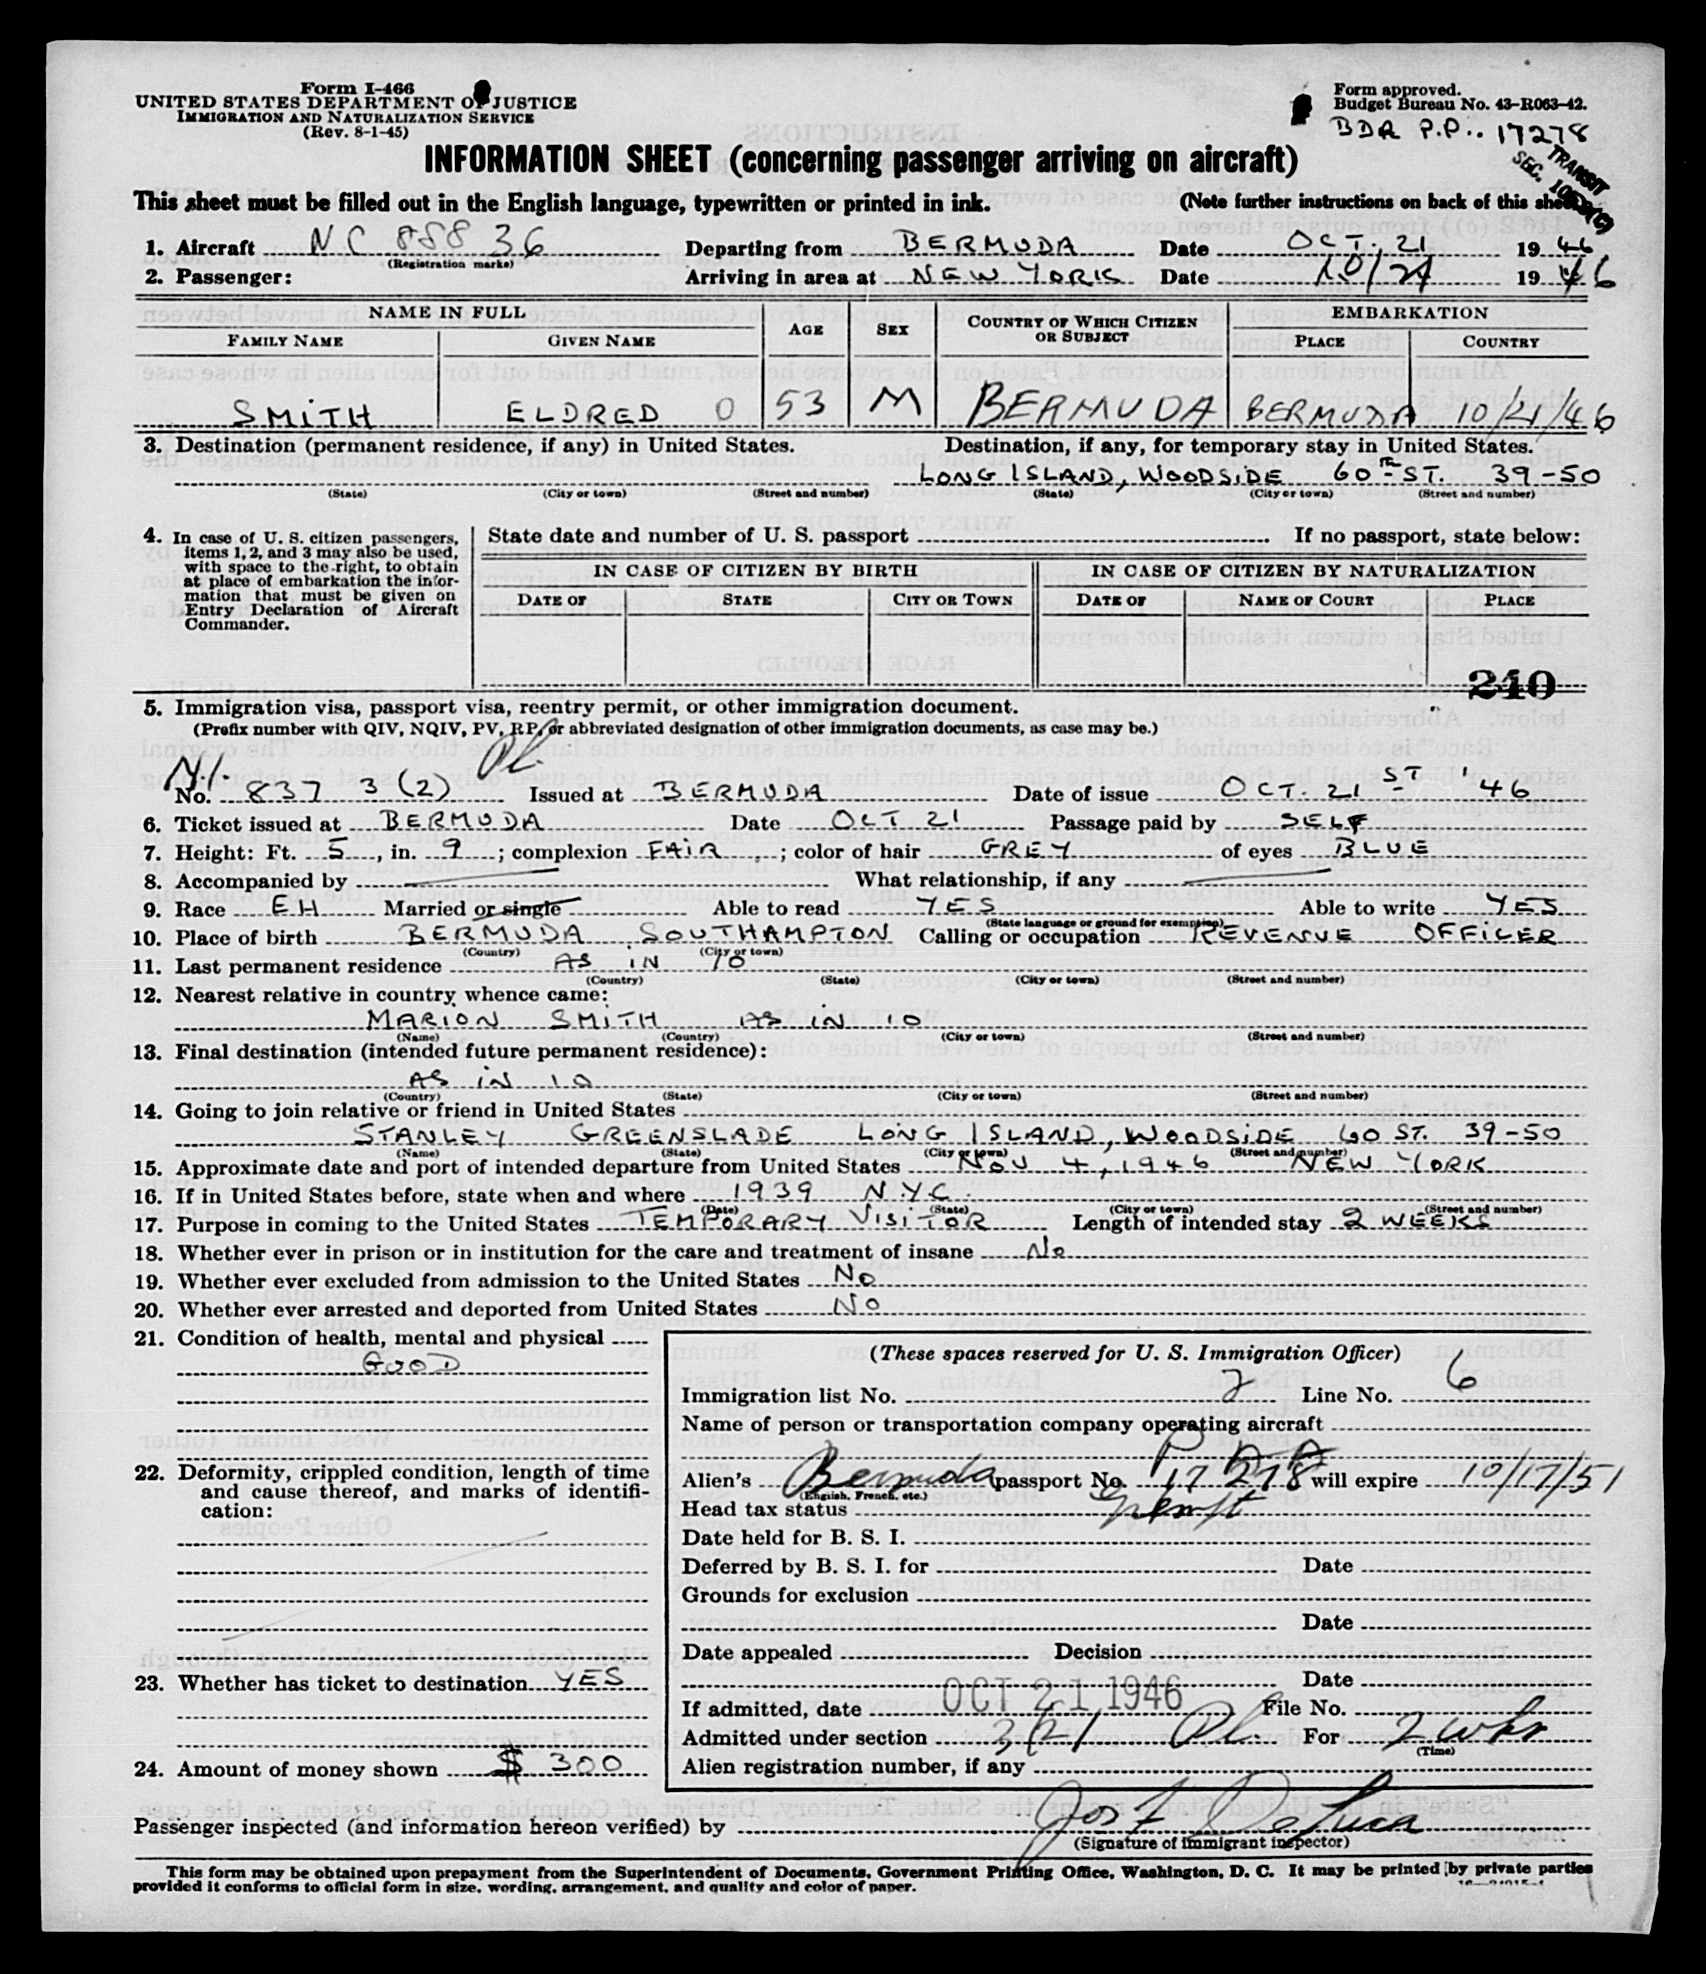 Form I-466
UNITED STATES DEPARTMENT OF JUSTICE
IMMIGRATION AND NATURALIZATION SERVICE
(Rev. 8-1-45)
Form approved.
Budget Bureau No. 43-R063-42.
BDA P.P.. 17278
TRANSIT
SEC.
INFORMATION SHEET (concerning passenger arriving on aircraft)
This sheet must be filled out in the English language, typewritten or printed in ink. (Note further instructions on back of this sheet)
1. Aircraft NC 88836 Departing from BERMUDA Date OCT. 21 19 46
(Registration marks)
2. Passenger: Arriving in area at NEW YORK Date 10/21 19 46
NAME IN FULL AGE SEX COUNTRY OF WHICH CITIZEN OR SUBJECT EMBARKATION
FAMILY NAME GIVEN NAME PLACE COUNTRY
SMITH ELDRED O 53 M BERMUDA BERMUDA 10/21/46
3. Destination (permanent residence, if any) in United States. Destination, if any, for temporary stay in United States.
LONG ISLAND, WOODSIDE 60TH ST. 39-50
(State) (City or town) (Street and number) (State) (City or town) (Street and number)
4. In case of U. S. citizen passengers, items 1, 2, and 3 may also be used, with space to the right, to obtain at place of embarkation the information that must be given on Entry Declaration of Aircraft Commander.
State date and number of U. S. passport If no passport, state below:
IN CASE OF CITIZEN BY BIRTH IN CASE OF CITIZEN BY NATURALIZATION
DATE OF STATE CITY OR TOWN DATE OF NAME OF COURT PLACE
240
5. Immigration visa, passport visa, reentry permit, or other immigration document.
(Prefix number with QIV, NQIV, PV, RP, or abbreviated designation of other immigration documents, as case may be.)
N.I.
No. 837 3 (2) Issued at BERMUDA Date of issue OCT. 21 ST '46
6. Ticket issued at BERMUDA Date OCT 21 Passage paid by SELF
7. Height: Ft. 5, in. 9; complexion FAIR; color of hair GREY of eyes BLUE
8. Accompanied by What relationship, if any
9. Race EH Married or single Able to read YES Able to write YES
(State language or ground for exemption)
10. Place of birth BERMUDA, SOUTHAMPTON Calling or occupation REVENUE OFFICER
(Country) (City or town)
11. Last permanent residence AS IN 10
(Country) (State) (City or town) (Street and number)
12. Nearest relative in country whence came:
MARION SMITH AS IN 10
(Name) (Country) (City or town) (Street and number)
13. Final destination (intended future permanent residence):
AS IN 10
(Country) (State) (City or town) (Street and number)
14. Going to join relative or friend in United States
STANLEY GREENSLADE LONG ISLAND, WOODSIDE 60 ST. 39-50
(Name) (State) (City or town) (Street and number)
15. Approximate date and port of intended departure from United States NOV 4, 1946 NEW YORK
16. If in United States before, state when and where 1939 N.Y.C.
(Date) (State) (City or town) (Street and number)
17. Purpose in coming to the United States TEMPORARY VISITOR Length of intended stay 2 WEEKS
18. Whether ever in prison or in institution for the care and treatment of insane No
19. Whether ever excluded from admission to the United States NO
20. Whether ever arrested and deported from United States NO
21. Condition of health, mental and physical
GOOD
22. Deformity, crippled condition, length of time and cause thereof, and marks of identification:
23. Whether has ticket to destination YES
24. Amount of money shown $ 300
(These spaces reserved for U. S. Immigration Officer)
Immigration list No. 2 Line No. 6
Name of person or transportation company operating aircraft
P A A
Alien's Bermuda passport No. 17278 will expire 10/17/51
(English, French, etc.)
Head tax status Exempt
Date held for B. S. I.
Deferred by B. S. I. for Date
Grounds for exclusion
Date
Date appealed Decision
Date
If admitted, date OCT 21 1946 File No.
Admitted under section 3(2) For 2 wks
(Time)
Alien registration number, if any
Passenger inspected (and information hereon verified) by Jos F DeLuca
(Signature of immigrant inspector)
This form may be obtained upon prepayment from the Superintendent of Documents, Government Printing Office, Washington, D. C. It may be printed by private parties
provided it conforms to official form in size, wording, arrangement, and quality and color of paper.